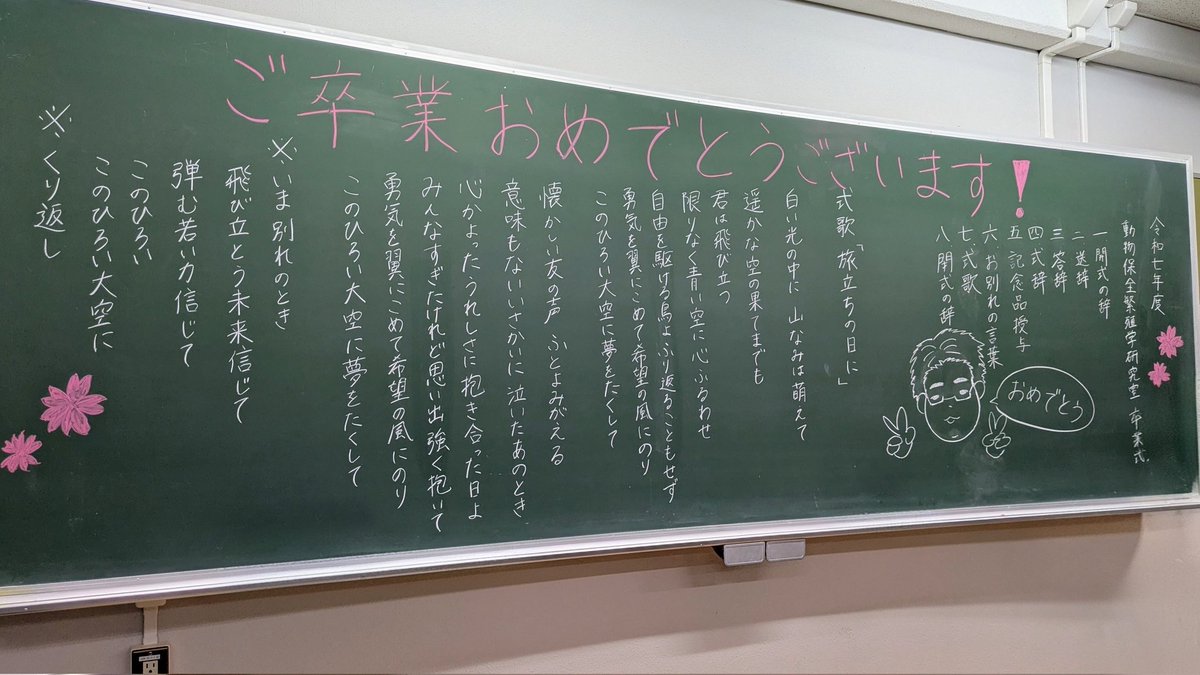 ご卒業おめでとうございます!
令和七年度
動物保全繁殖学研究室 卒業式
一 開式の辞
二 送辞
三 答辞
四 式辞
五 記念品授与
六 お別れの言葉
七 式歌
八 閉式の辞
おめでとう
式歌「旅立ちの日に」
白い光の中に 山なみは萌えて
遥かな空の果てまでも
君は飛び立つ
限りなく青い空に心ふるわせ
自由を駆ける鳥よふり返ることもせず
勇気を翼にこめて希望の風にのり
このひろい大空に夢をたくして
懐かしい友の声 ふとよみがえる
意味もないいさかいに 泣いたあのとき
心かよったうれしさに抱き合った日よ
みんなすぎたけれど思い出強く抱いて
勇気を翼にこめて希望の風にのり
このひろい大空に夢をたくして
※いま別れのとき
飛び立とう未来信じて
弾む若い力信じて
このひろい
このひろい大空に
※くり返し